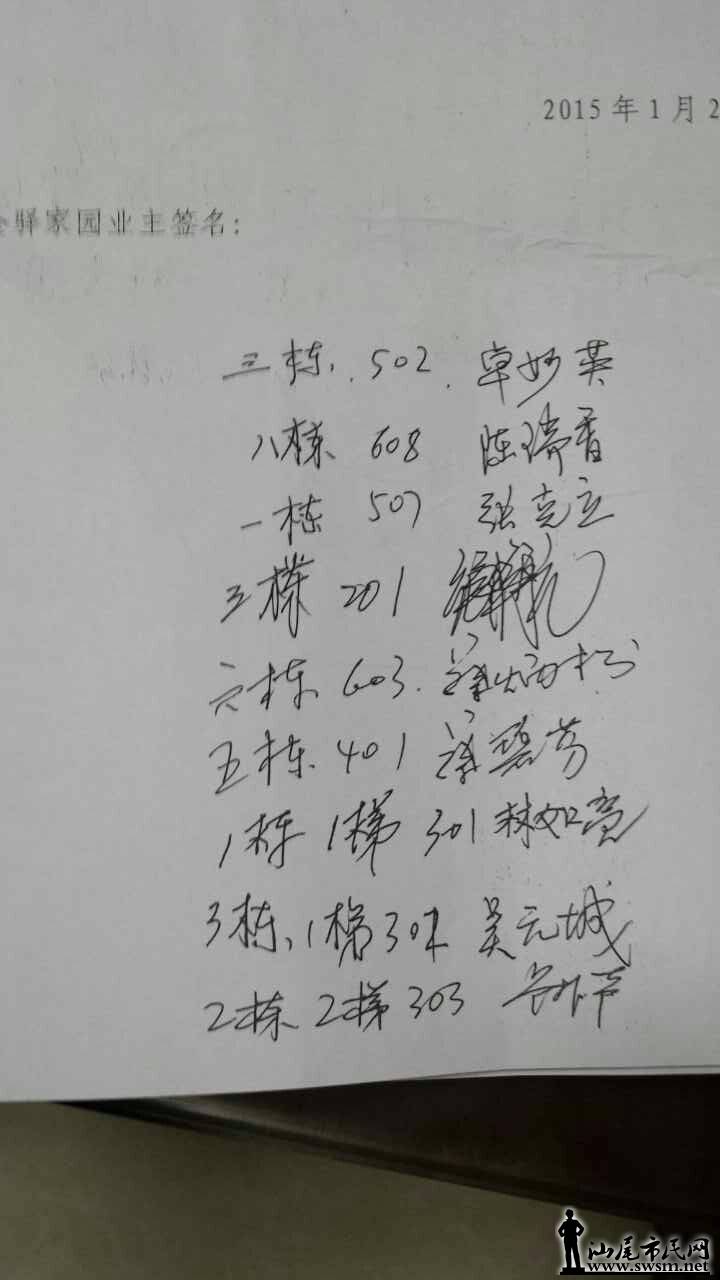 2015年1月2
驿家园业主签名：
三栋. 502. 卓妙英
八栋 608 陈瑞香
一栋 507 张克立
三栋 201
六栋 603.
五栋. 401 碧芳
1栋 1梯 301 林如亮
3栋, 1梯 302 吴元城
2栋 2梯 303
汕尾市民网
www.swsm.net